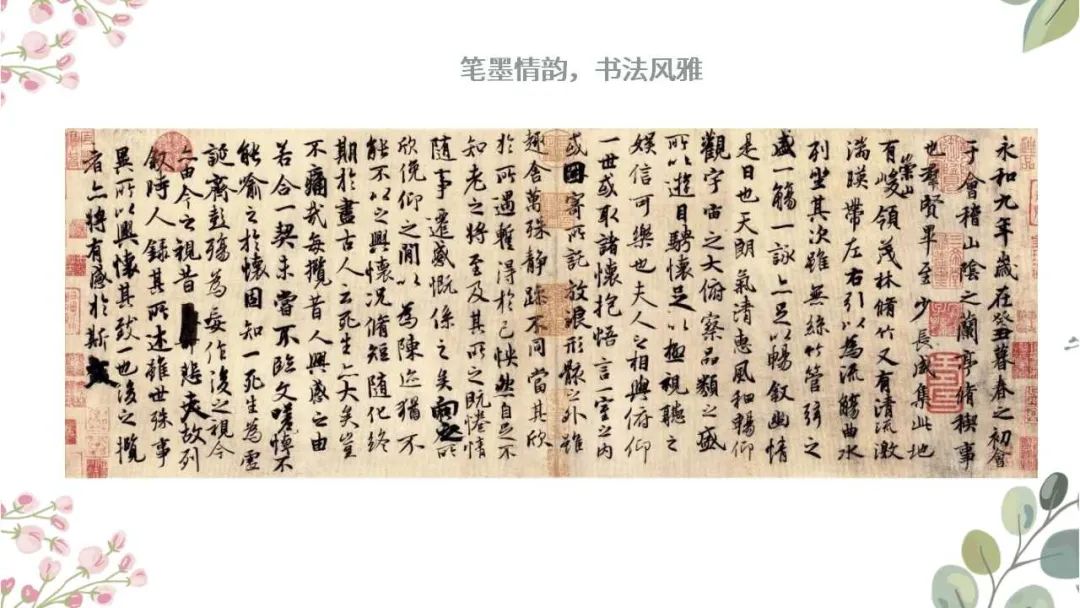 笔墨情韵，书法风雅
永和九年歲在癸丑暮春之初會
于會稽山陰之蘭亭脩稧事
也羣賢畢至少長咸集此地
有崇山峻領茂林脩竹又有清流激
湍暎帶左右引以為流觴曲水
列坐其次雖無絲竹管弦之
盛一觴一詠亦足以暢敘幽情
是日也天朗氣清惠風和暢仰
觀宇宙之大俯察品類之盛
所以遊目騁懷足以極視聽之
娛信可樂也夫人之相與俯仰
一世或取諸懷抱悟言一室之內
或因寄所託放浪形骸之外雖
趣舍萬殊靜躁不同當其欣
於所遇暫得於己怏然自足不
知老之將至及其所之既惓情
隨事遷感慨係之矣向之所
欣俛仰之閒以為陳迹猶不
能不以之興懷況脩短隨化終
期於盡古人云死生亦大矣豈
不痛哉每攬昔人興感之由
若合一契未嘗不臨文嗟悼不
能喻之於懷固知一死生為虛
誕齊彭殤為妄作後之視今
亦由今之視昔悲夫故列
敘時人錄其所述雖世殊事
異所以興懷其致一也後之攬
者亦將有感於斯文